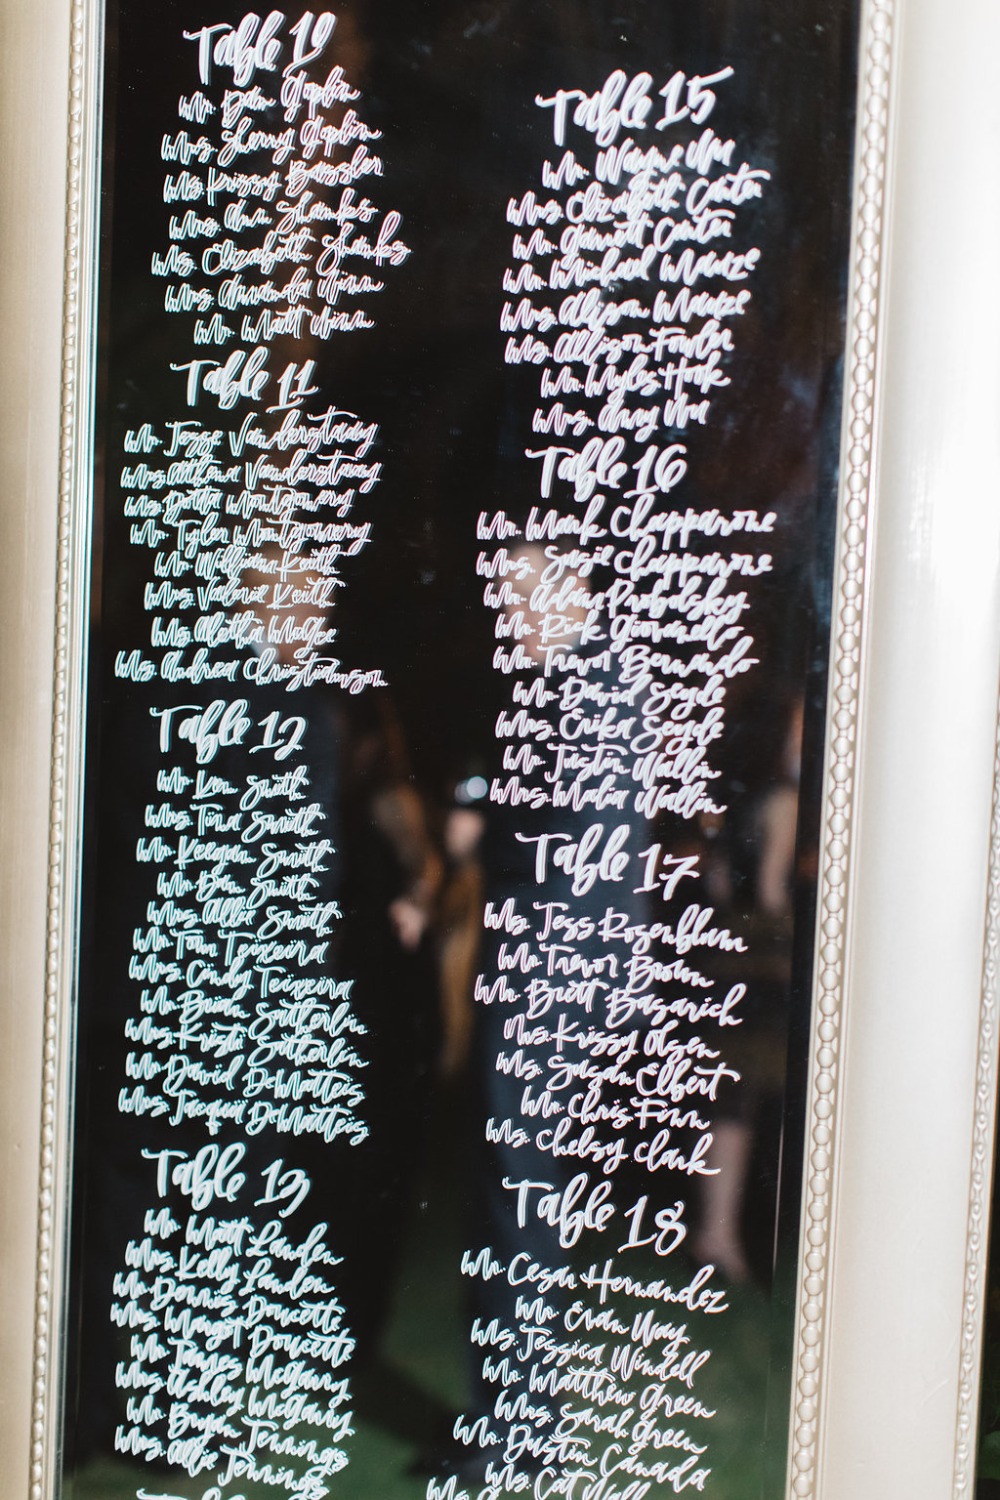 Table 10
Mr. Dan Goplin
Mrs. Sherry Goplin
Ms. Krissy Bassler
Mrs. Ann Shanks
Ms. Elizabeth Shanks
Mrs. Amanda Ninn
Mr. Matt Ninn
Table 11
Mr. Jesse Vanderstaay
Mrs. Athena Vanderstaay
Ms. Montgomery
Mr. Tyler Montgomery
Mr. William Keith
Mrs. Valerie Keith
Ms. Aletha McGee
Ms. Andrea Christianson
Table 12
Mr. Ken Smith
Mrs. Tina Smith
Mr. Keegan Smith
Mr. Dan Smith
Mrs. Allie Smith
Mr. Tom Teixeira
Mrs. Cindy Teixeira
Mr. Brian Satherlin
Mrs. Kristi Satherlin
Mr. David DeMatteis
Mrs. Jacqui DeMatteis
Table 13
Mr. Matt Landen
Mrs. Kelly Landen
Mr. Dennis Doucette
Mrs. Margot Doucette
Mr. James McGarry
Mrs. Ashley McGarry
Mr. Bryan Jennings
Mrs. Allie Jennings
Table 15
Mr. Wayne Wu
Mrs. Elizabeth Canter
Mr. Garrett Canter
Mr. Michael Mauze
Mrs. Alyson Mauze
Ms. Allison Fowler
Mr. Myles Hook
Mrs. Amy Wu
Table 16
Mr. Mark Chapparone
Mrs. Susie Chapparone
Mr. Adam Probolsky
Mr. Rick Giovanello
Mr. Trevor Bernardo
Mr. David Seyde
Mrs. Erika Seyde
Mr. Justin Wallin
Mrs. Malia Wallin
Table 17
Ms. Jess Rosenblum
Mr. Trevor Brown
Mr. Brett Basarich
Ms. Krissy Olsen
Ms. Susan Elbert
Mr. Chris Finn
Ms. Chelsy Clark
Table 18
Mr. Cesar Hernandez
Mr. Evan Way
Ms. Jessica Windell
Mr. Matthew Green
Mrs. Sarah Green
Mr. Dustin Canada
Ms. Cat